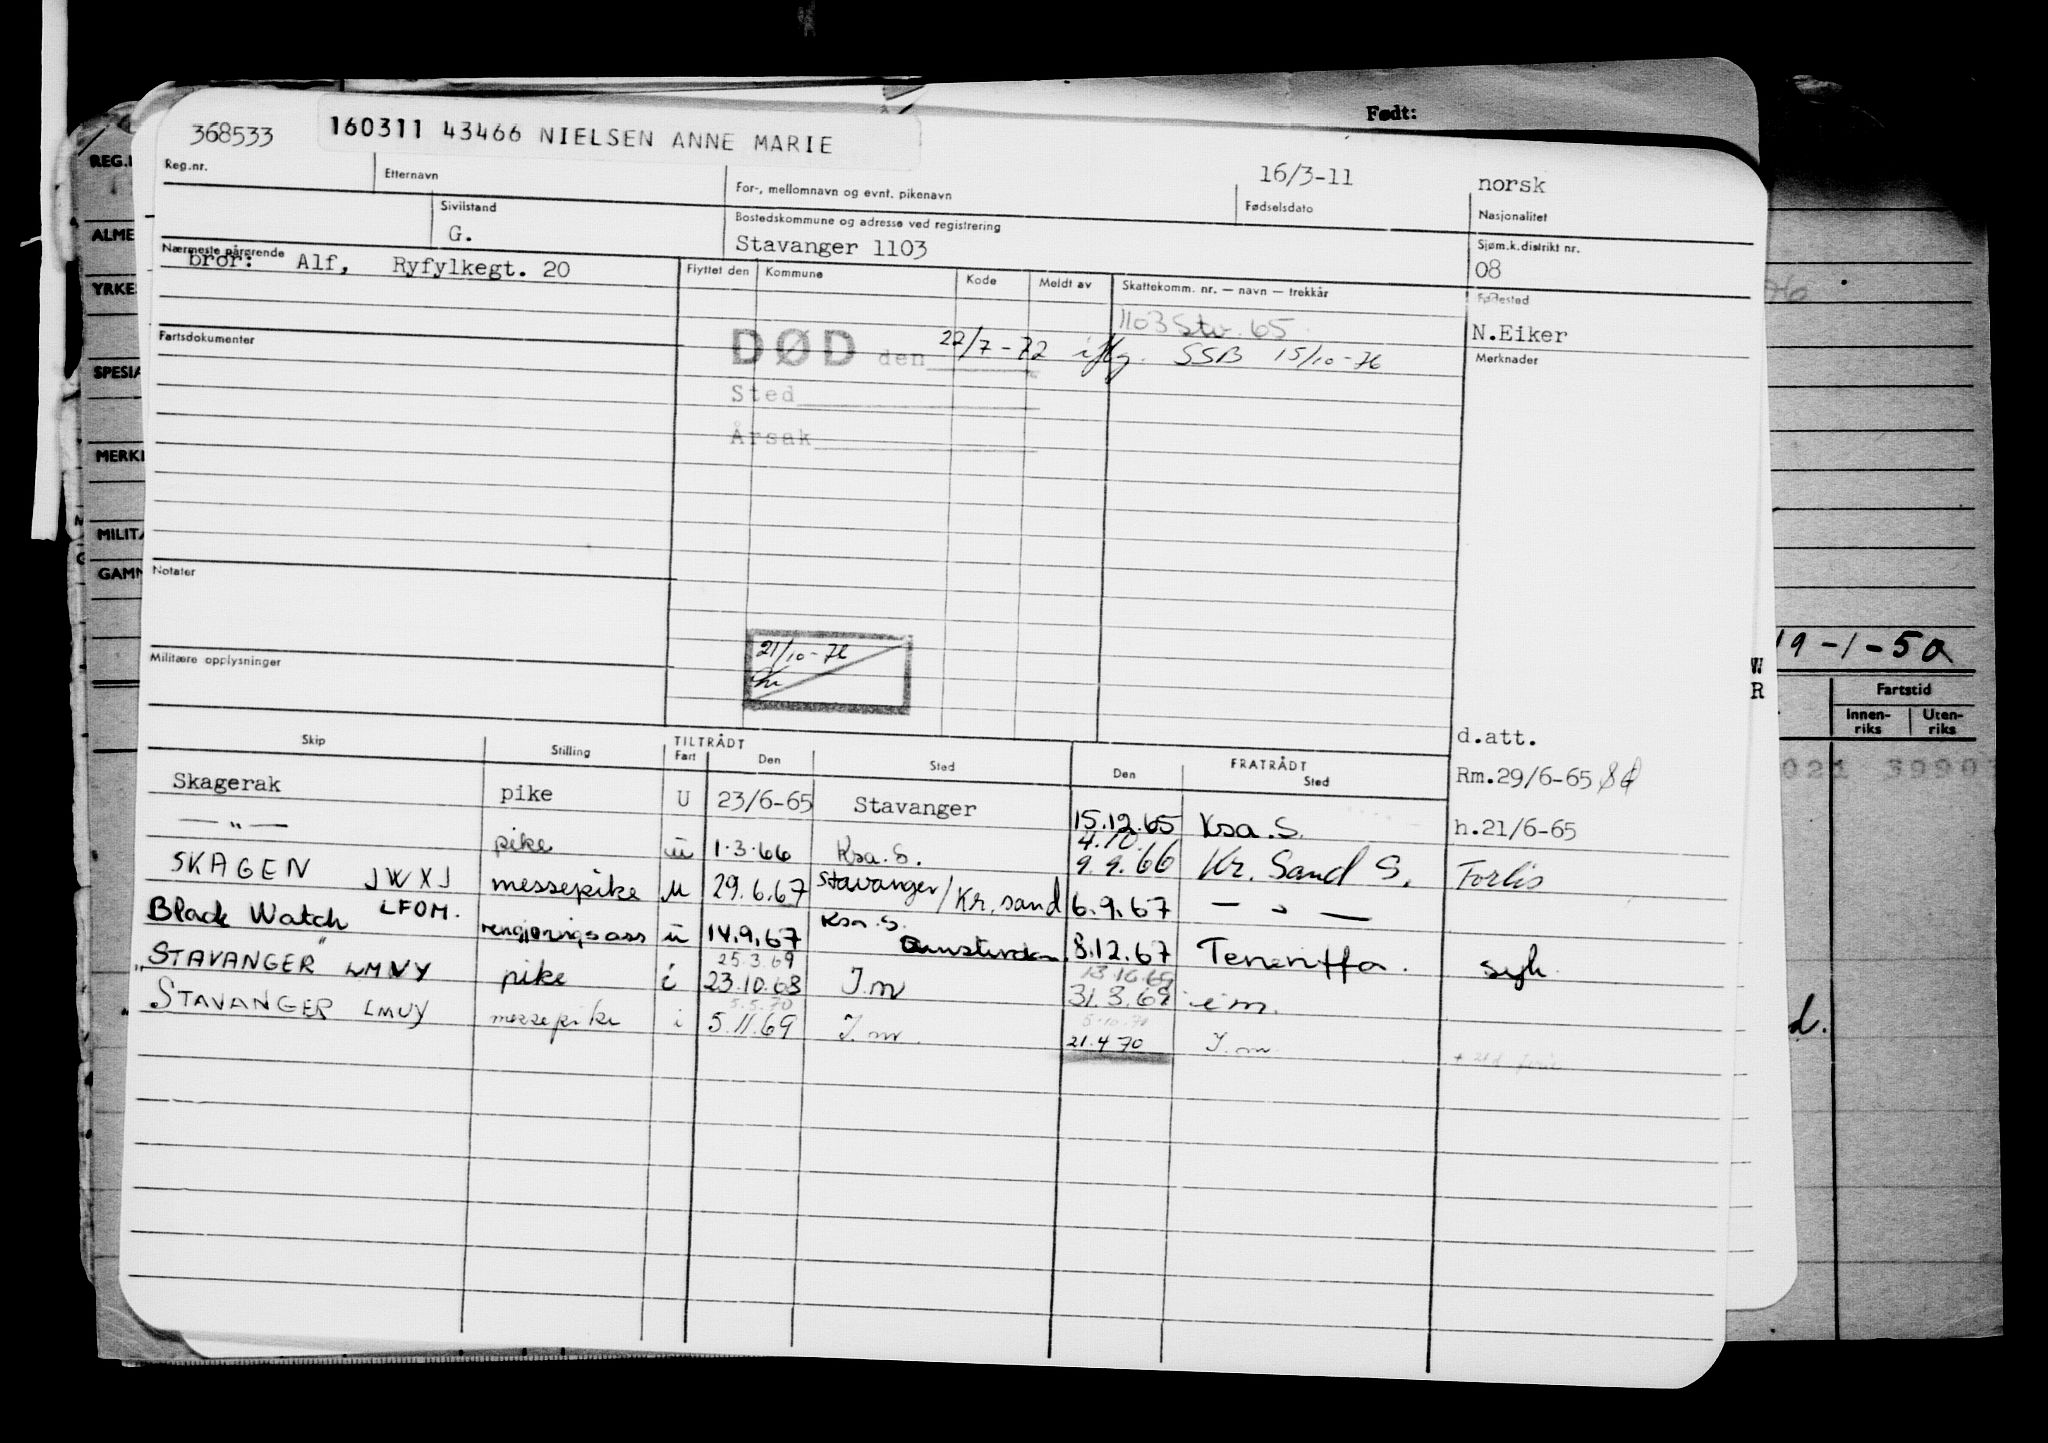 Født:
368533 160311 43466 NIELSEN ANNE MARIE
16/3-11 norsk
Reg.nr. Etternavn For-, mellomnavn og evnt. pikenavn Fødselsdato Nasjonalitet
Sivilstand Bostedskommune og adresse ved registrering Sjøm.k.distrikt nr.
G. Stavanger 1103 08
Nærmeste pårørende
bror: Alf, Ryfylkegt. 20
Flyttet den Kommune Kode Meldt av Skattekomm. nr. — navn — trekkår Fødested
1103 Stv. 65 N.Eiker
Fartsdokumenter Merknader
DØD den 22/7-72 iflg. SSB 15/10-76
Sted
Årsak
Notater
21/10-76
Militære opplysninger
d.att.
Skip Stilling TILTRÅDT Fart Den Sted Den FRATRÅDT Sted
Rm.29/6-65
Skagerak pike U 23/6-65 Stavanger 15.12.65 Ksa.S. h.21/6-65
— " — pike u 1.3.66 Ksa.S. 4.10. 9.9.66 Kr. Sand S. Forlis
SKAGEN JWXJ messepike u 29.6.67 Stavanger/Kr.sand 6.9.67 — " —
Black Watch LFOM. rengjøringsass u 14.9.67 Ksa.S. Amsterdam 8.12.67 Teneriffa. syk.
"STAVANGER" LMVY pike i 25.3.69 23.10.68 I.m 13.10.69 31.3.69 i m.
STAVANGER LMVY messepike i 5.5.70 5.11.69 I.m. 5.10.71 21.4.70 I.m.
REG.
ALME
YRKE
SPESIA
MERK
MILITÆ
GAMM
19-1-50
W
R
Fartstid
Innen-riks Uten-riks
021 3990
d.